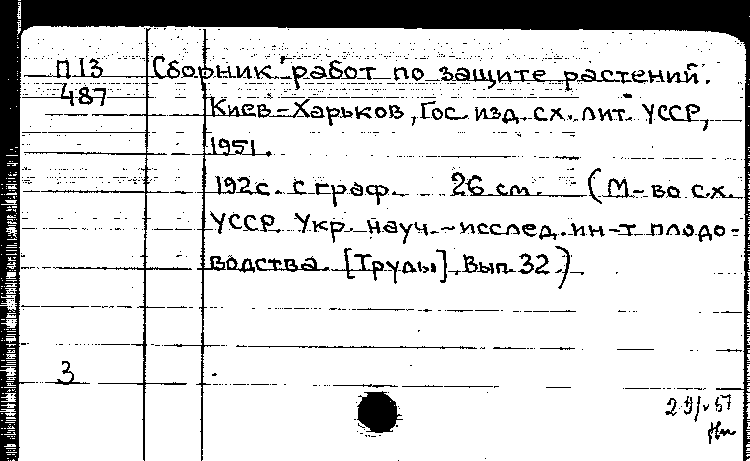 П13 Сборник работ по защите растений.
487
Киев-Харьков, Гос. изд. с.х. лит. УССР,
1951.
192 с. с граф. 26 см. (М-во с.х.
УССР. Укр. науч.-исслед. ин-т плодо-
водства. [Труды]. Вып. 32)
3